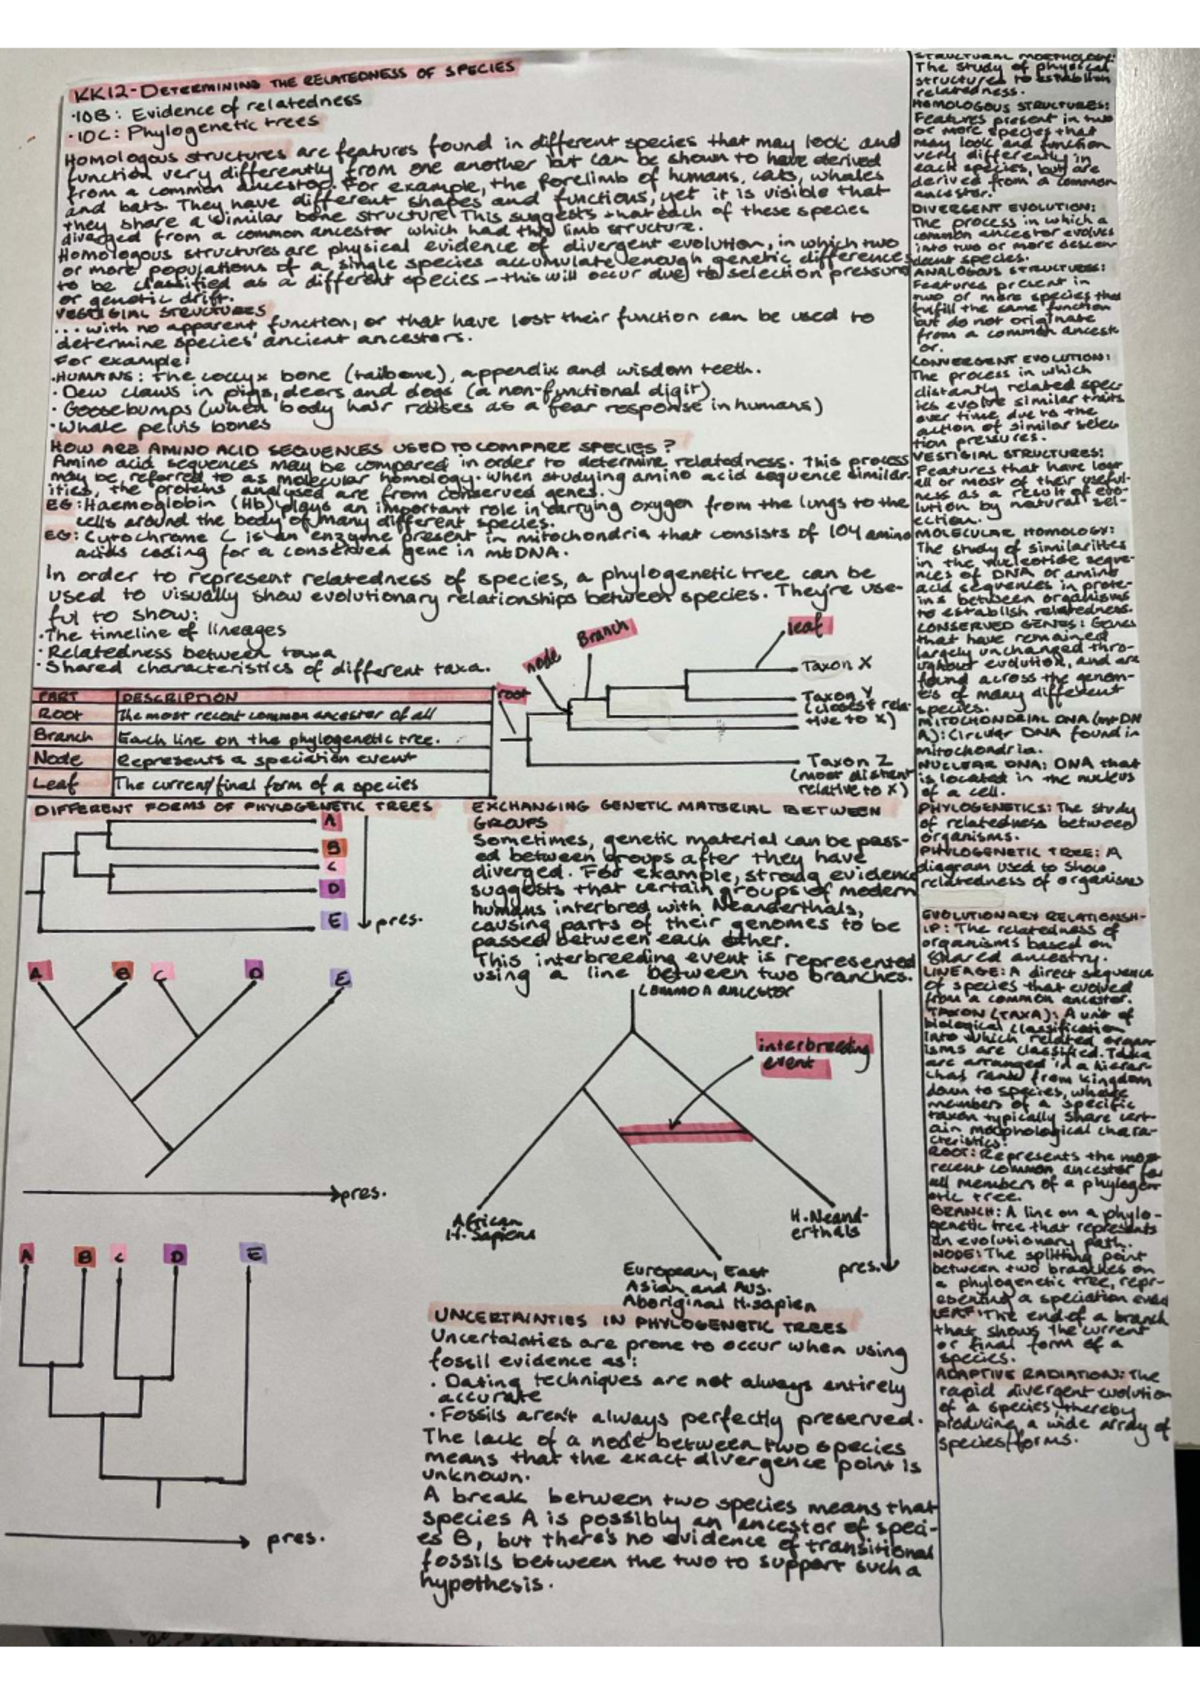 KK12-DETERMINING THE RELATEDNESS OF SPECIES
·10B: Evidence of relatedness
·10C: Phylogenetic trees
Homologous structures are features found in different species that may look and
function very differently from one another but can be shown to have derived
from a common ancestor. For example, the forelimb of humans, cats, whales
and bats. They have different shapes and functions, yet it is visible that
they share a similar bone structure. This suggests that each of these species
diverged from a common ancestor which had this limb structure.
Homologous structures are physical evidence of divergent evolution, in which two
or more populations of a single species accumulate enough genetic differences
to be classified as a different species - this will occur due to selection pressure
or genetic drift.
VESTIGIAL STRUCTURES
... with no apparent function, or that have lost their function can be used to
determine species' ancient ancestors.
For example:
·HUMANS: The coccyx bone (tailbone), appendix and wisdom teeth.
· Dew claws in pigs, deers and dogs (a non-functional digit)
· Goosebumps (when body hair raises as a fear response in humans)
· Whale pelvis bones
HOW ARE AMINO ACID SEQUENCES USED TO COMPARE SPECIES?
Amino acid sequences may be compared in order to determine relatedness. This process
may be referred to as molecular homology. When studying amino acid sequence similar-
ities, the proteins analysed are from conserved genes.
EG: Haemoglobin (Hb) plays an important role in carrying oxygen from the lungs to the
cells around the body of many different species.
EG: Cytochrome C is an enzyme present in mitochondria that consists of 104 amino
acids coding for a conserved gene in mtDNA.
In order to represent relatedness of species, a phylogenetic tree can be
used to visually show evolutionary relationships between species. They're use-
ful to show:
·The timeline of lineages
·Relatedness between taxa
·Shared characteristics of different taxa.
PART DESCRIPTION
Root The most recent common ancestor of all
Branch Each line on the phylogenetic tree.
Node Represents a speciation event
Leaf The current/final form of a species
root
node
Branch
leaf
Taxon X
Taxon Y
(closest rela-
tive to X)
Taxon Z
(most distant
relative to X)
DIFFERENT FORMS OF PHYLOGENETIC TREES
A
B
C
D
E
pres.
A B C D E
pres.
A B C D E
pres.
EXCHANGING GENETIC MATERIAL BETWEEN
GROUPS
Sometimes, genetic material can be pass-
ed between groups after they have
diverged. For example, strong evidence
suggests that certain groups of modern
humans interbred with Neanderthals,
causing parts of their genomes to be
passed between each other.
This interbreeding event is represented
using a line between two branches.
COMMON ancestor
interbreeding
event
African
H. Sapiens
H. Neand-
erthals
European, East
Asian and Aus.
Aboriginal H.sapien
pres.
UNCERTAINTIES IN PHYLOGENETIC TREES
Uncertainties are prone to occur when using
fossil evidence as:
· Dating techniques are not always entirely
accurate
· Fossils aren't always perfectly preserved.
The lack of a node between two species
means that the exact divergence point is
unknown.
A break between two species means that
species A is possibly an ancestor of speci-
es B, but there's no evidence of transitional
fossils between the two to support such a
hypothesis.
STRUCTURAL MORPHOLOGY:
The study of physical
structures to establish
relatedness.
HOMOLOGOUS STRUCTURES:
Features present in two
or more species that
may look and function
very differently in
each species, but are
derived from a common
ancestor.
DIVERGENT EVOLUTION:
The process in which a
common ancestor evolves
into two or more descen
dant species.
ANALOGOUS STRUCTURES:
Features present in
two or more species that
fulfill the same function
but do not originate
from a common ancest
or.
CONVERGENT EVOLUTION:
The process in which
distantly related spec
ies evolve similar traits
over time due to the
action of similar selec
tion pressures.
VESTIGIAL STRUCTURES:
Features that have lost
all or most of their useful-
ness as a result of evo-
lution by natural sel-
ection.
MOLECULAR HOMOLOGY:
The study of similarities
in the nucleotide seque-
nces of DNA or amino
acid sequences in prote-
ins between organisms
to establish relatedness.
CONSERVED GENES: Genes
that have remained
largely unchanged thro-
ughout evolution, and are
found across the genom-
es of many different
species.
MITOCHONDRIAL DNA (mtDN
A): Circular DNA found in
mitochondria.
NUCLEAR DNA: DNA that
is located in the nucleus
of a cell.
PHYLOGENETICS: The study
of relatedness between
organisms.
PHYLOGENETIC TREE: A
diagram used to show
relatedness of organisms
EVOLUTIONARY RELATIONSH-
IP: The relatedness of
organisms based on
shared ancestry.
LINEAGE: A direct sequence
of species that evolved
from a common ancestor.
TAXON (TAXA): A unit of
biological classification
into which related organ
isms are classified. Taxa
are arranged in a hierar
chal rank from kingdom
down to species, whose
members of a specific
taxon typically share cert-
ain morphological chara-
cteristics.
ROOT: Represents the most
recent common ancestor for
all members of a phylogen
etic tree.
BRANCH: A line on a phylo-
genetic tree that represents
an evolutionary path.
NODE: The splitting point
between two branches on
a phylogenetic tree, repr-
esenting a speciation event
LEAF: The end of a branch
that shows the current
or final form of a
species.
ADAPTIVE RADIATION: The
rapid divergent evolution
of a species, thereby
producing a wide array of
species/forms.